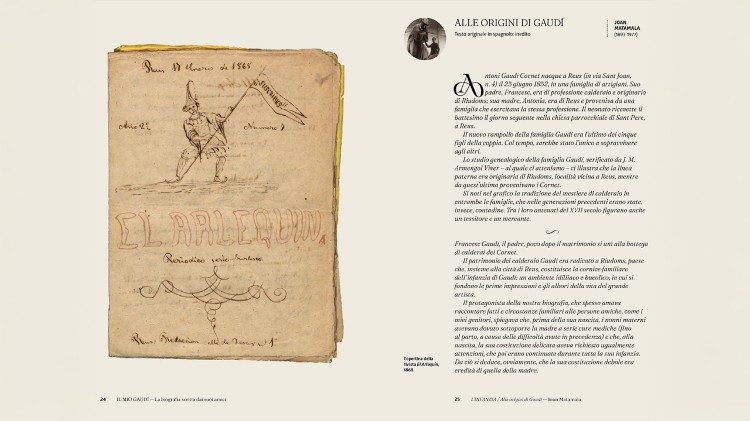 Reus 17 Enero de 1868
Año 2º
Numero 1
EL ARLEQUIN.
Periodico serio-burlesco
Reus:
24 IL MIO GAUDÍ — La biografia scritta dai suoi amici
ALLE ORIGINI DI GAUDÍ
Testo originale in spagnolo: inedito
JOAN
MATAMALA
(1893-1977)
Antoni Gaudí Cornet nacque a Reus (in via Sant Joan,
n. 4) il 25 giugno 1852, in una famiglia di artigiani. Suo
padre, Francesc, era di professione calderaio e originario
di Riudoms; sua madre, Antonia, era di Reus e proveniva da una
famiglia che esercitava la stessa professione. Il neonato ricevette il
battesimo il giorno seguente nella chiesa parrocchiale di Sant Pere,
a Reus.
Il nuovo rampollo della famiglia Gaudí era l'ultimo dei cinque
figli della coppia. Col tempo, sarebbe stato l'unico a sopravvivere
agli altri.
Lo studio genealogico della famiglia Gaudí, verificato da J. M.
Armengol Viver – al quale ci atteniamo – ci illustra che la linea
paterna era originaria di Riudoms, località vicina a Reus, mentre
da quest'ultima provenivano i Cornet.
Si noti nel grafico la tradizione del mestiere di calderaio in
entrambe le famiglie, che nelle generazioni precedenti erano state,
invece, contadine. Tra i loro antenati del XVII secolo figurano anche
un tessitore e un mercante.
Francesc Gaudí, il padre, poco dopo il matrimonio si unì alla bottega
di calderai dei Cornet.
Il patrimonio del calderaio Gaudí era radicato a Riudoms, paese
che, insieme alla città di Reus, costituisce la cornice familiare
dell'infanzia di Gaudí: un ambiente idilliaco e bucolico, in cui si
fondono le prime impressioni e gli albori della vita del grande
artista.
Il protagonista della nostra biografia, che spesso amava
raccontare fatti e circostanze familiari alle persone amiche, come i
miei genitori, spiegava che, prima della sua nascita, i nonni materni
avevano dovuto sottoporre la madre a serie cure mediche (fino
al parto, a causa delle difficoltà avute in precedenza) e che, alla
nascita, la sua costituzione delicata aveva richiesto ugualmente
attenzioni, che poi erano continuate durante tutta la sua infanzia.
Da ciò si deduce, ovviamente, che la sua costituzione debole era
eredità di quella della madre.
Copertina della
rivista El Arlequín,
1868.
25 L'INFANZIA / Alle origini di Gaudí — Joan Matamala